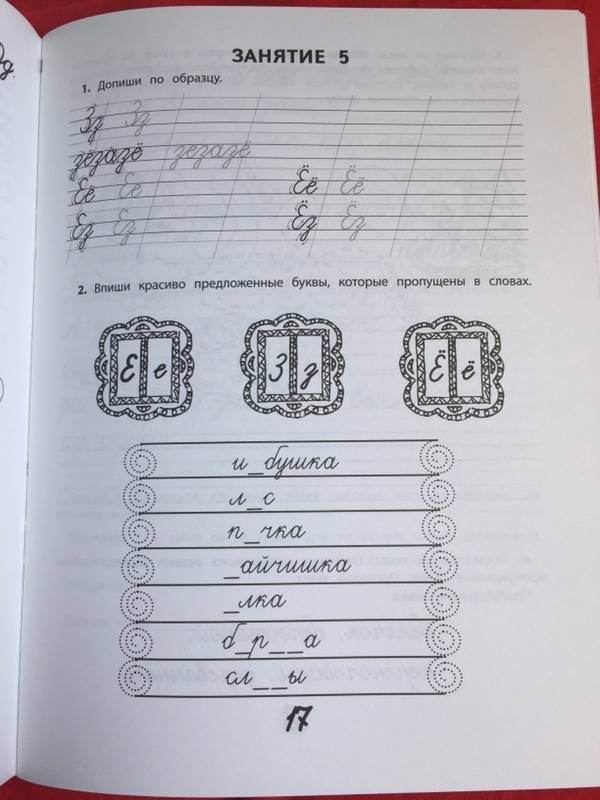 ЗАНЯТИЕ 5
1. Допиши по образцу.
Зз Зз
зёзазё зезазе
Ее Ее Ёё Ёё
Ез Ез Ёз Ёз
2. Впиши красиво предложенные буквы, которые пропущены в словах.
Е е З з Ё ё
и_бушка
л_с
п_чка
_айчишка
_лка
б_р__а
сл__ы
17